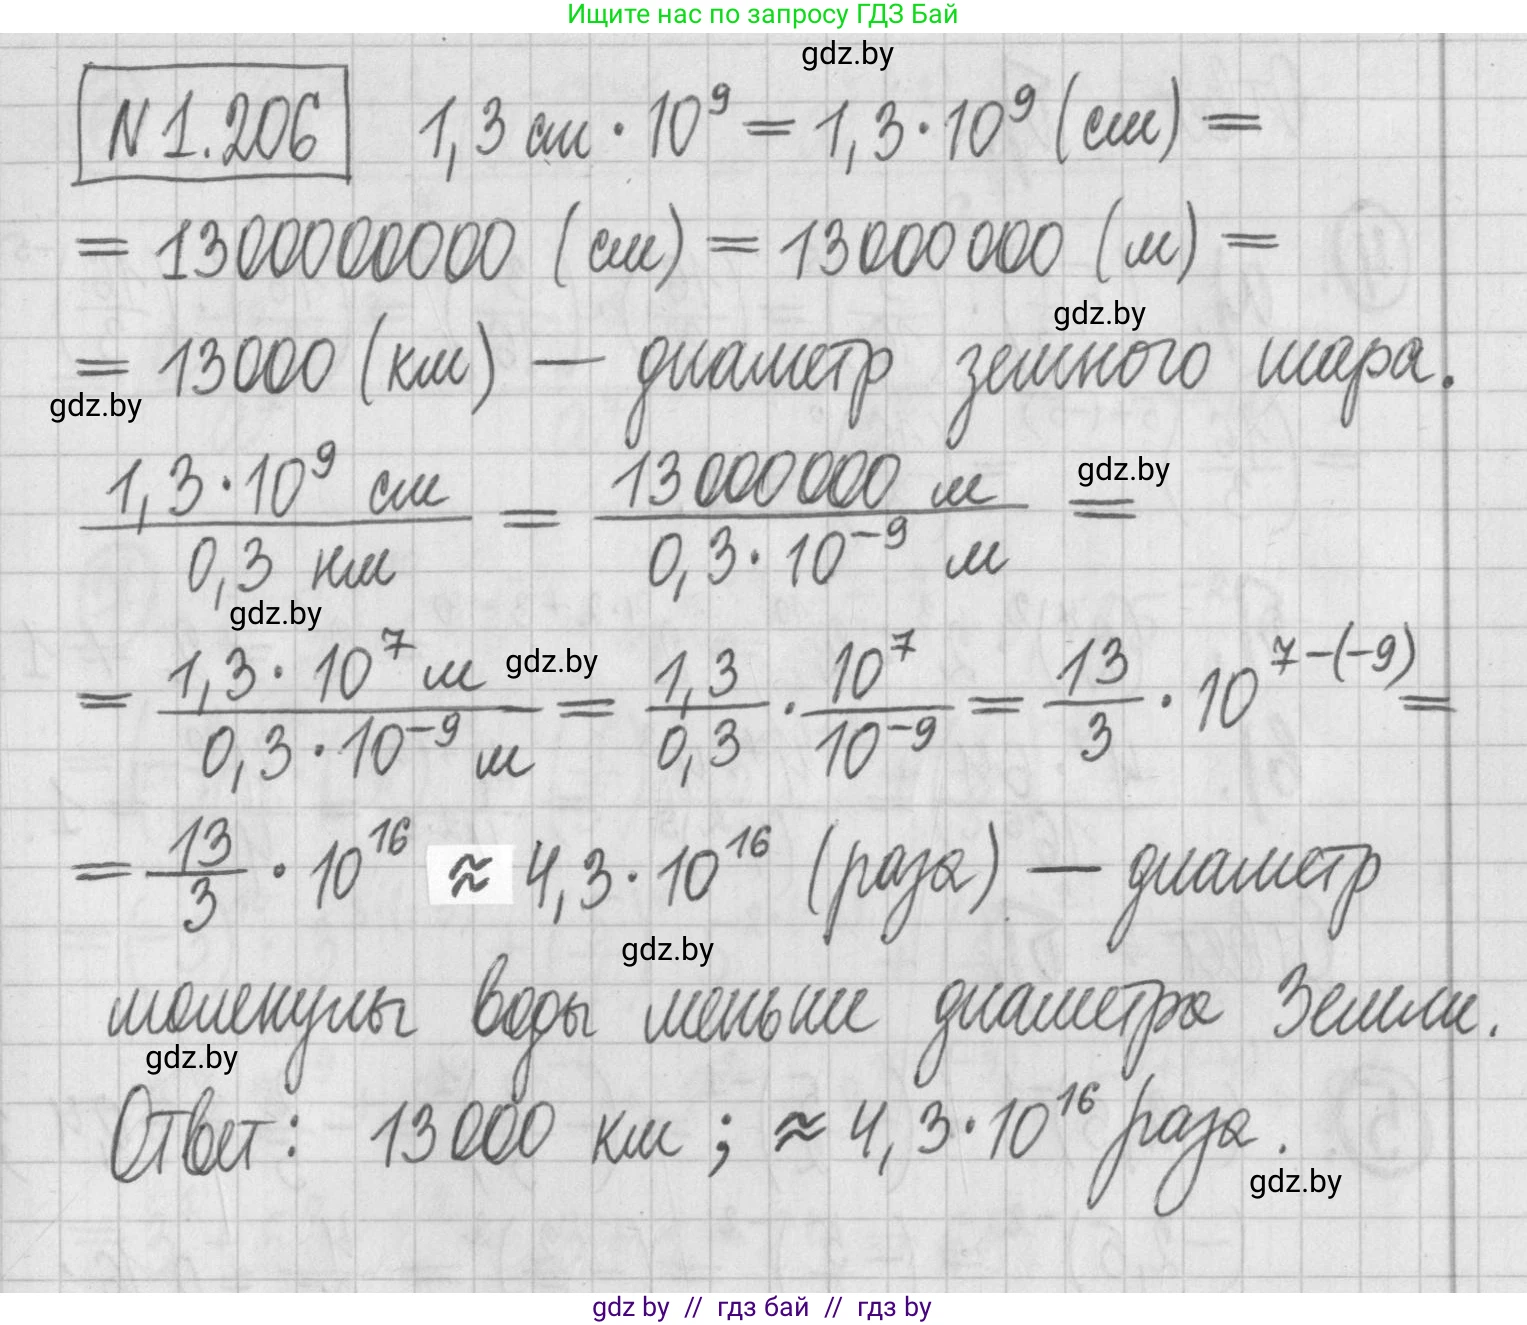 Ищите нас по запросу ГДЗ Бай
gdz.by
N 1.206 1,3 см · 10⁹ = 1,3 · 10⁹ (см) =
= 1300000000 (см) = 13000000 (м) =
gdz.by
= 13000 (км) — диаметр земного шара.
gdz.by
1,3 · 10⁹ см / 0,3 нм = 13000000 м / 0,3 · 10⁻⁹ м =
gdz.by
gdz.by
= 1,3 · 10⁷ м / 0,3 · 10⁻⁹ м = 1,3 / 0,3 · 10⁷ / 10⁻⁹ = 13 / 3 · 10⁷⁻⁽⁻⁹⁾ =
gdz.by
= 13 / 3 · 10¹⁶ ≈ 4,3 · 10¹⁶ (раза) — диаметр
gdz.by
молекулы воды меньше диаметра Земли.
gdz.by
Ответ: 13000 км ; ≈ 4,3 · 10¹⁶ раза.
gdz.by
gdz by // гдз бай // гдз by